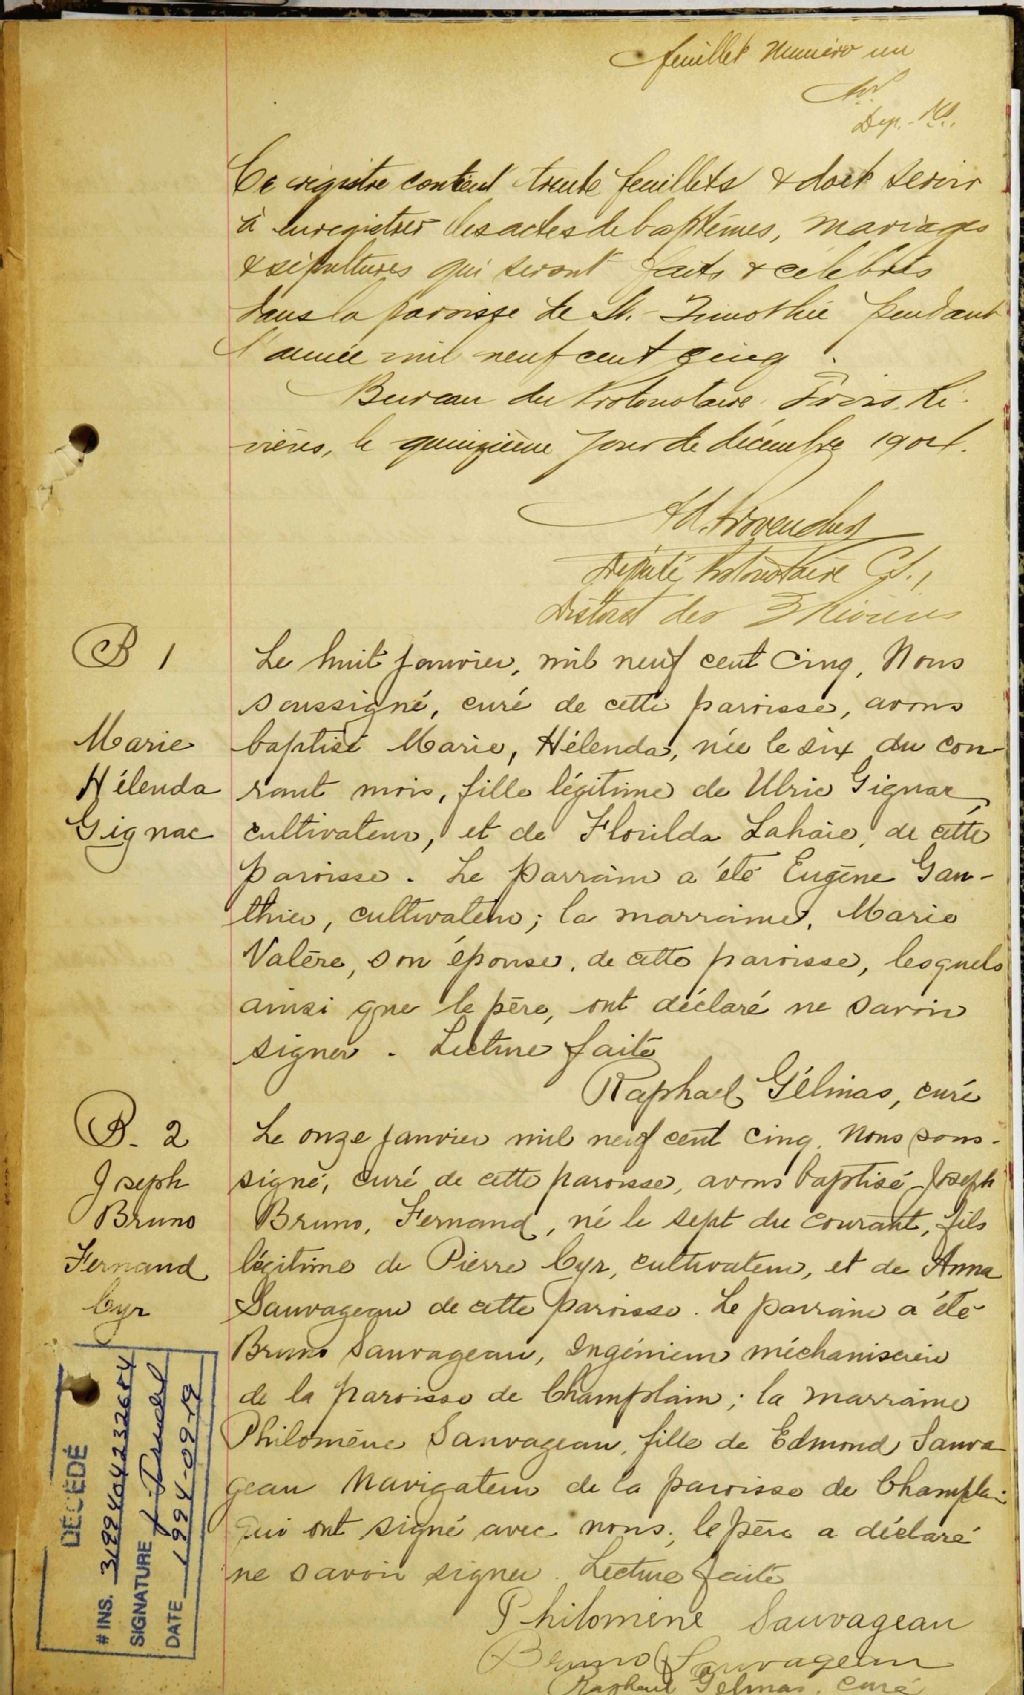 feuillet numéro un
Dep. P.
Ce registre contient trente feuillets & doit servir
à enregistrer les actes de baptêmes, mariages
& sépultures qui seront faits & célébrés
dans la paroisse de St. Timothée pendant
l'année mil neuf cent cinq.
Bureau du Protonotaire Trois Ri-
vières, le quinzième jour de décembre 1904.
Député Protonotaire C.S.,
District des 3 Rivières
B 1
Marie
Hélenda
Gignac
Le huit janvier, mil neuf cent cinq, Nous
soussigné, curé de cette paroisse, avons
baptisé Marie, Hélenda, née le six du cou-
rant mois, fille légitime de Ulric Gignac,
cultivateur, et de Florilda Lahaie, de cette
paroisse. Le parrain a été Eugène Gau-
thier, cultivateur; la marraine, Marie
Valère, son épouse, de cette paroisse, lesquels
ainsi que le père, ont déclaré ne savoir
signer. Lecture faite
Raphael Gélinas, curé
B. 2
Joseph
Bruno
Fernand
Cyr
Le onze janvier mil neuf cent cinq, Nous sous-
signé, curé de cette paroisse, avons baptisé Joseph
Bruno, Fernand, né le sept du courant, fils
légitime de Pierre Cyr, cultivateur, et de Anna
Sauvageau de cette paroisse. Le parrain a été
Bruno Sauvageau, Ingénieur méchanicien
de la paroisse de Champlain; la marraine
Philomène Sauvageau, fille de Edmond Sauva
geau Navigateur de la paroisse de Champlain
qui ont signé avec nous; le père a déclaré
ne savoir signer. Lecture faite
Philomène Sauvageau
Bruno Sauvageau
Raphael Gélinas, curé
DÉCÉDÉ
# INS. 3199404232684
SIGNATURE
DATE 1994-09-19